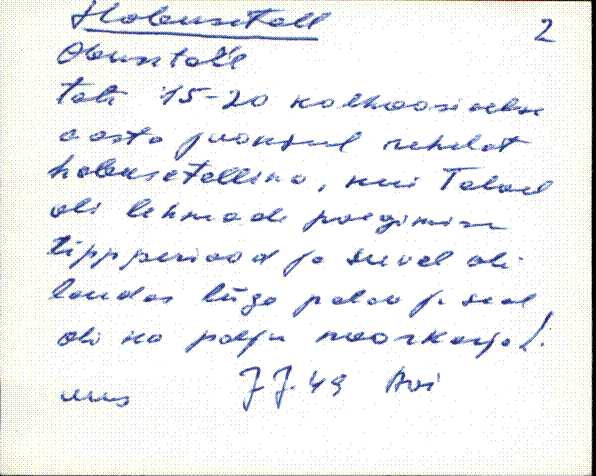 Hobusetall 2
Obusetall
tati 15-20 kolhoosieelse
aasta jooksul rehalat
hobusetallina, kui Talvel
oli lehmade poegimise
tippperiood ja suvel oli
laudas liiga palav ja seal
oli ka palju noorkarja!
J J. 49 Avi